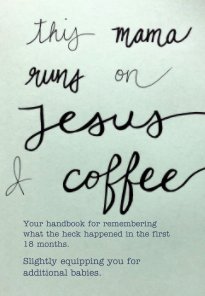 this mama
runs on
Jesus
& coffee
Your handbook for remembering
what the heck happened in the first
18 months.
Slightly equipping you for
additional babies.